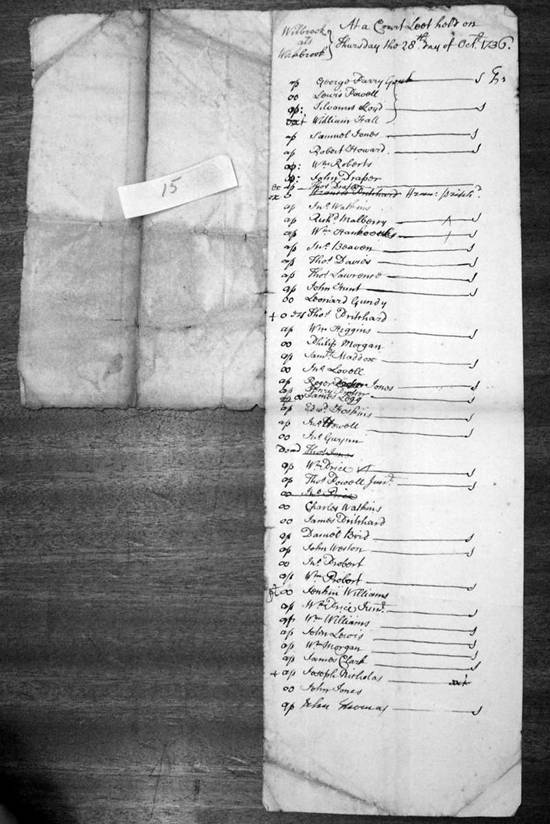 Wilbrook
als
Walbrook
At a Court Leet held on
Thursday the 28th day of Octr. 1736.
ap George Parry Gent J
oo Lewis Powell
ap: Silvanus Lloyd J
ext William Hall
ap Samuel Jones J
ap Robert Howard J
ap: Wm Roberts
ap: John Draper
ap Thos Draper
Francis Pritchard
ap Jno. Watkins
ap Richd. Malberry J
ap Wm Hancocks J
ap Jno. Beavan J
ap Thos. Davies J
ap Thos. Lawrence J
ap John Hunt J
oo Leonard Gundy
+ o Thos. Pritchard
ap Wm Higgins J
oo Philip Morgan
ap Saml. Maddox J
oo Jno. Lovell
ap Roger Jones J
ap oo James Legg J
ap Edwd. Hoskins J
ap Jno. Howell J
oo Jno. Gwynn
Dead Thos. Jones
ap Wm Price J
ap Thos. Powell Junr. J
oo Jno. Price
oo Charles Watkins
oo James Pritchard
ap Daniel Brid J
ap John Weston J
oo Jno. Probert
ap Wm Robert J
oo Jenkin Williams
ap Wm Price Junr. J
ap Wm Williams J
ap John Lewis J
ap Wm Morgan J
ap James Clark J
+ ap Joseph Nicholas ext
oo John Jones
ap John Thomas J
15